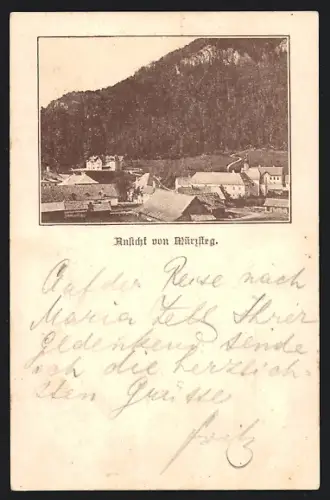 Ansicht von Mürzsteg.
Auf der Reise nach
Maria Zell Ihrer
gedenkend sende
ich die herzlich-
sten Grüsse
Fritz